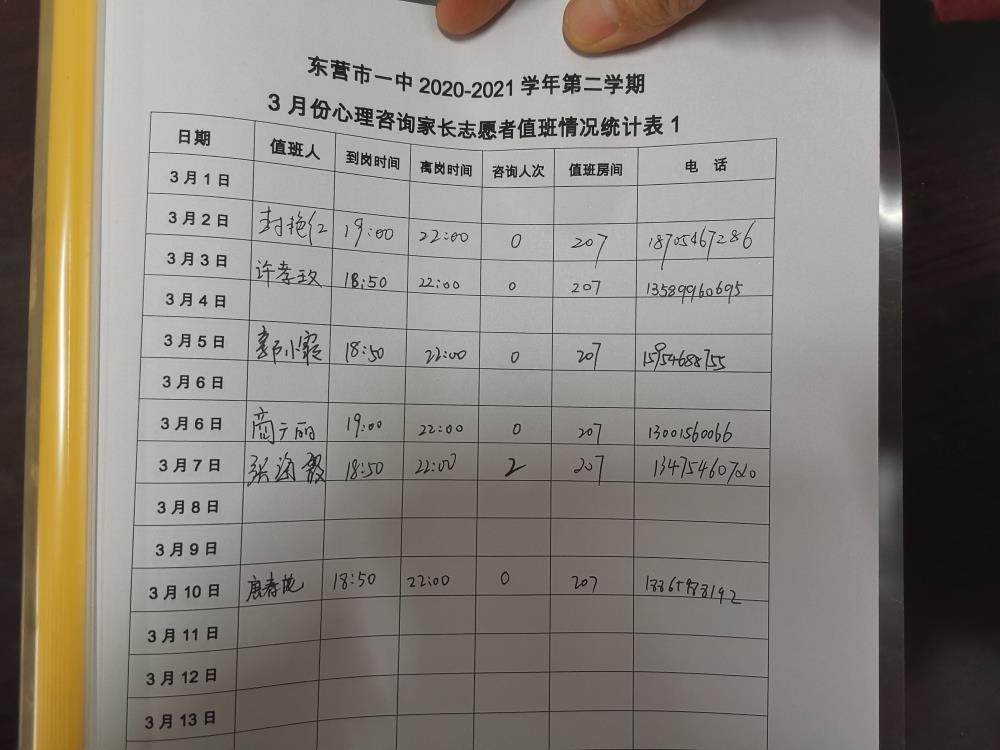 东营市一中 2020-2021 学年第二学期
3 月份心理咨询家长志愿者值班情况统计表 1
日期 值班人 到岗时间 离岗时间 咨询人次 值班房间 电 话
3 月 1 日
3 月 2 日 封艳红 19:00 22:00 0 207 18705467286
3 月 3 日 许孝玫 18:50 22:00 0 207 13589960695
3 月 4 日
3 月 5 日 郭小霞 18:50 22:00 0 207 15954688755
3 月 6 日
3 月 6 日 高广丽 19:00 22:00 0 207 13001560066
3 月 7 日 张海霞 18:50 22:00 2 207
3 月 8 日
3 月 9 日
3 月 10 日 18:50 22:00 0 207
3 月 11 日
3 月 12 日
3 月 13 日